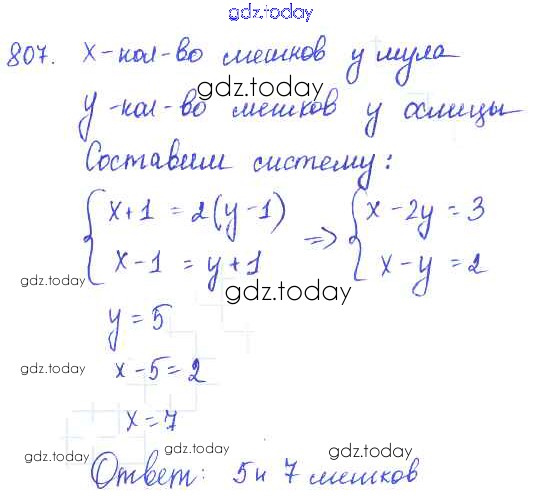 gdz.today
807. x-кол-во мешков у мула
gdz.today
y-кол-во мешков у ослицы
Составим систему:
{ x+1 = 2(y-1) => { x-2y = 3
x-1 = y+1 x-y = 2
gdz.today
gdz.today
y = 5
gdz.today
x-5=2
x=7
gdz.today
gdz.today
Ответ: 5 и 7 мешков